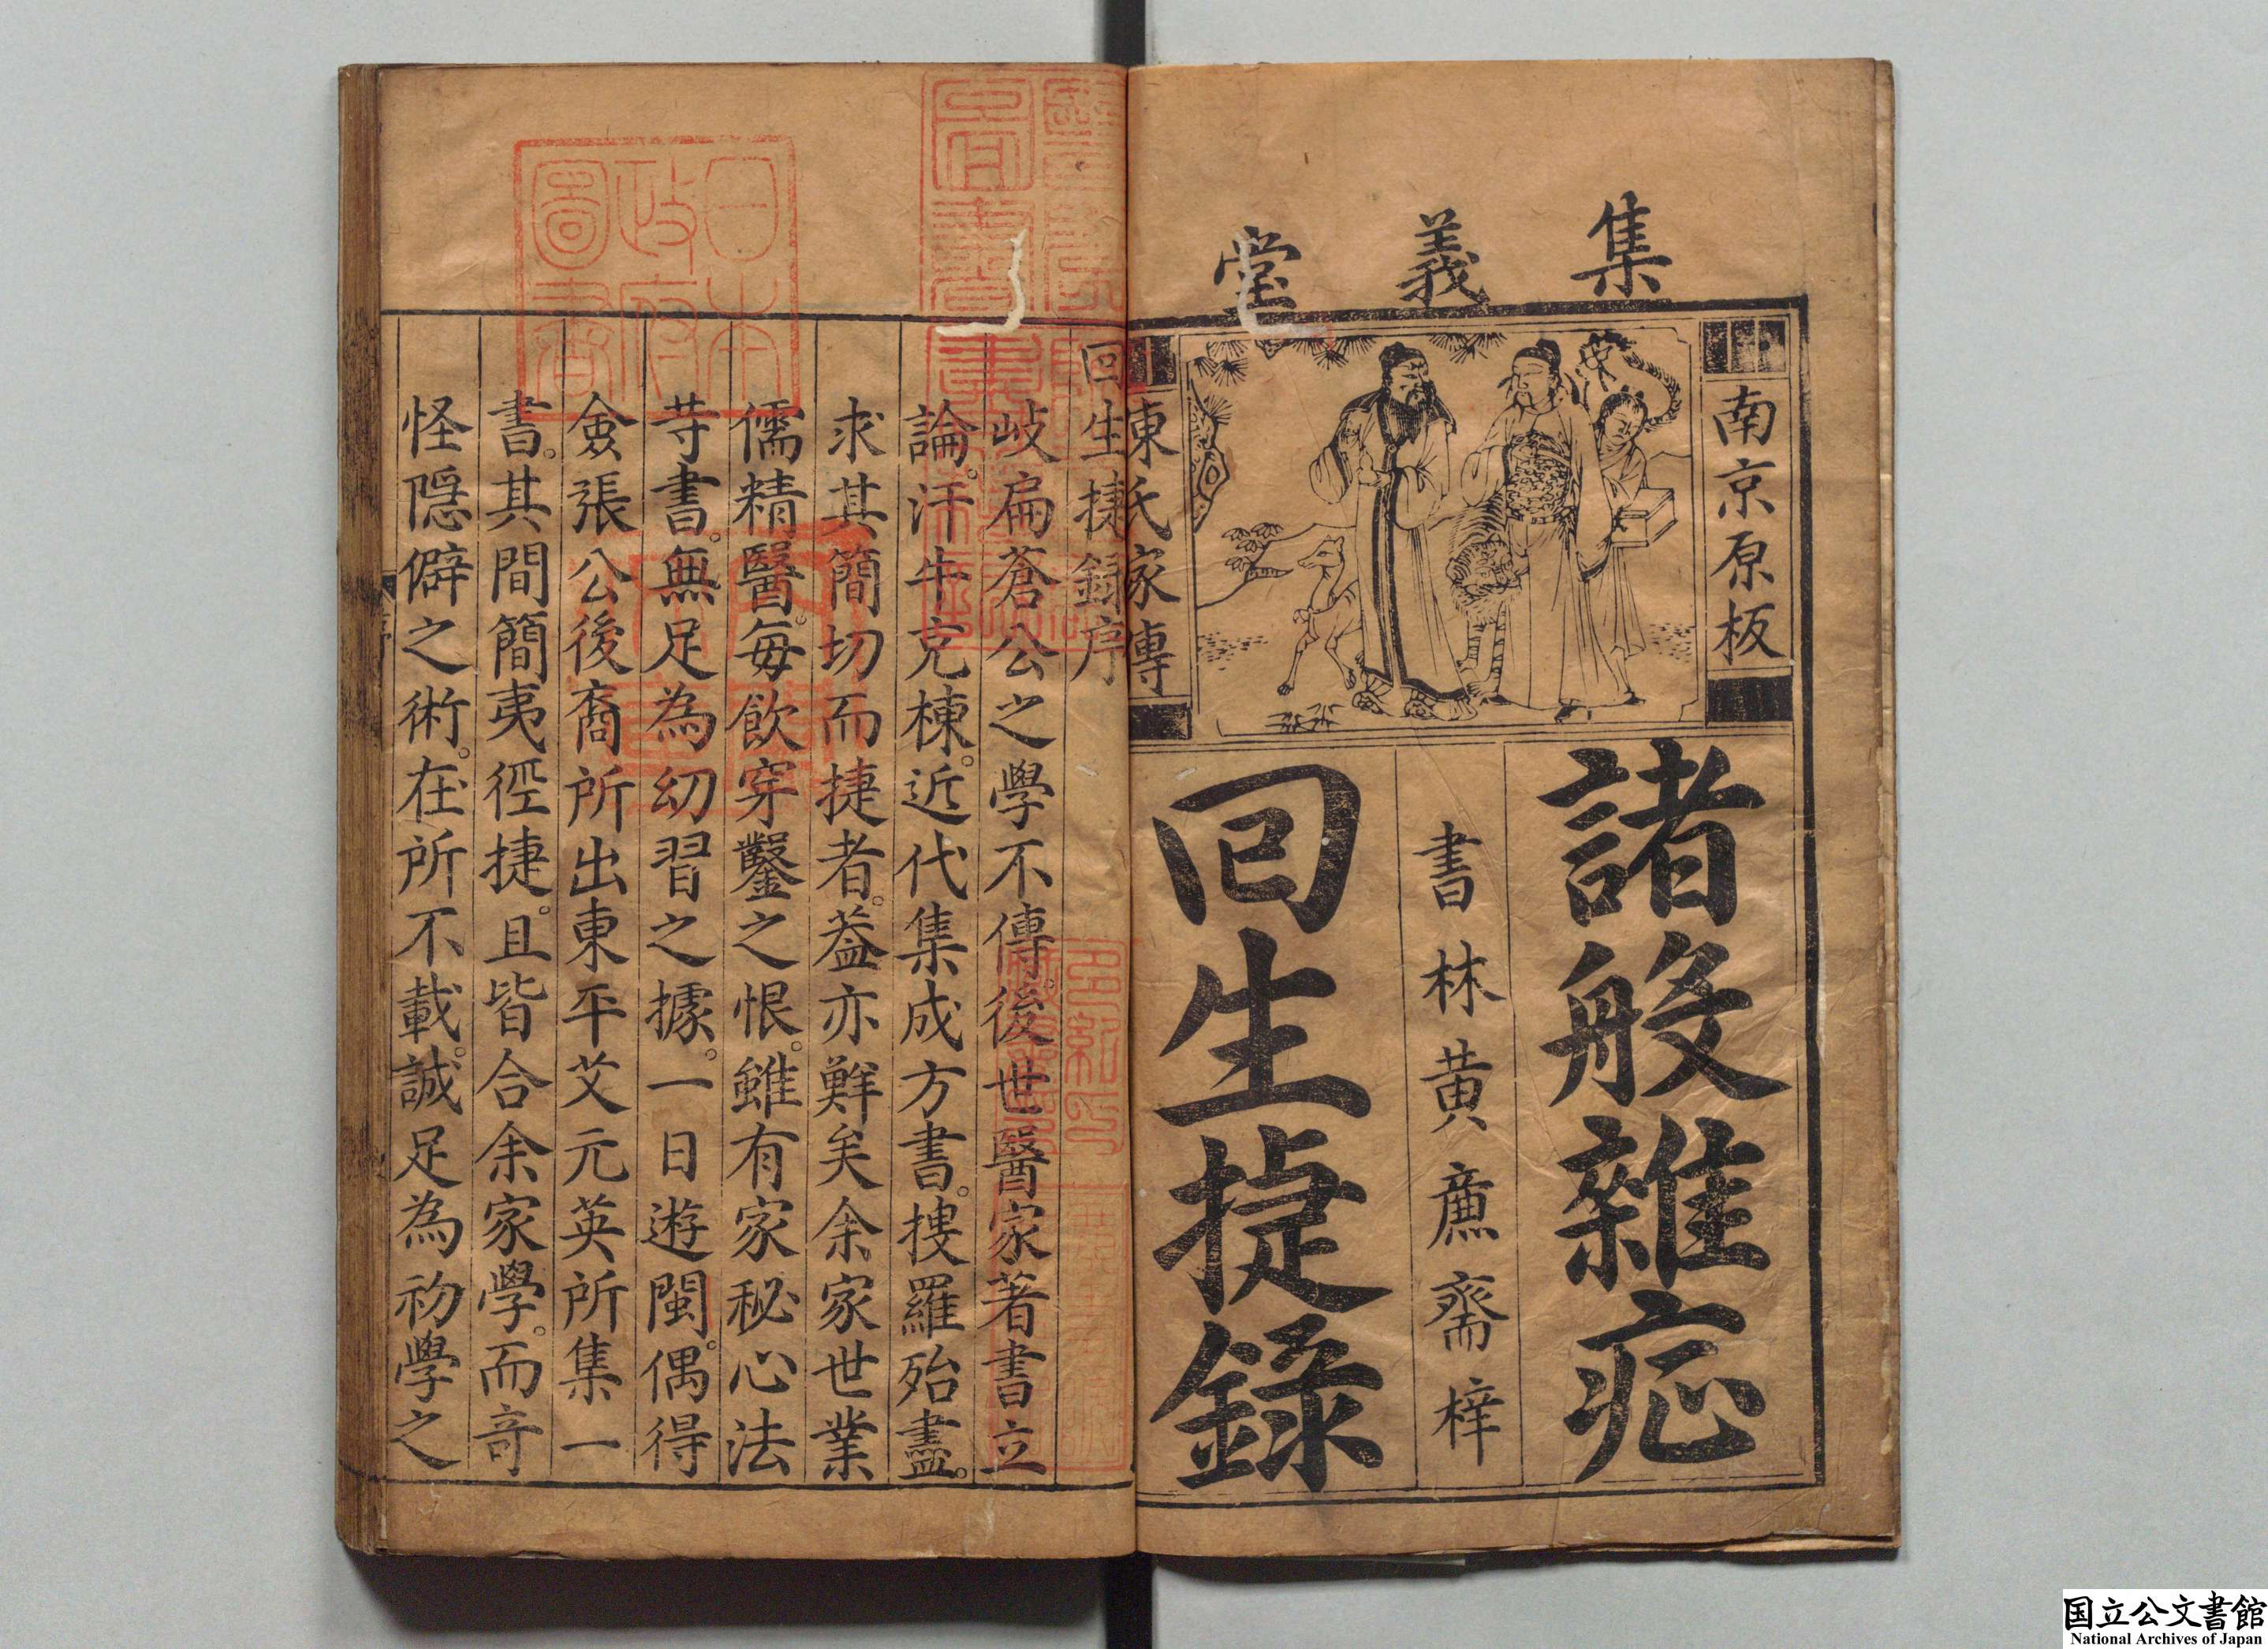 集義堂
南京原板
東氏家傳
諸般雜症
書林黄廌齋梓
回生捷録
回生捷録序
岐扁蒼公之學不傳。後世醫家著書立
論。汗牛充棟。近代集成方書。摟羅殆盡。
求其簡切而捷者。葢亦鮮矣余家世業
儒精醫。每飲穿鑿之恨。雖有家秘心法
等書。無足為幼習之據。一日遊閩。偶得
僉張公後裔所出東平艾元英所集一
書。其間簡夷徑捷。且皆合余家學。而奇
怪隠僻之術。在所不載。誠足為初學之
日本政府圖書
国立公文書館
National Archives of Japan